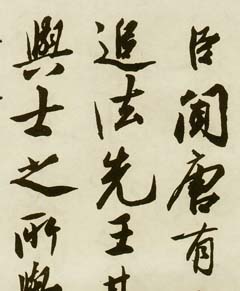 臣聞唐有
追法先王其
興士之所